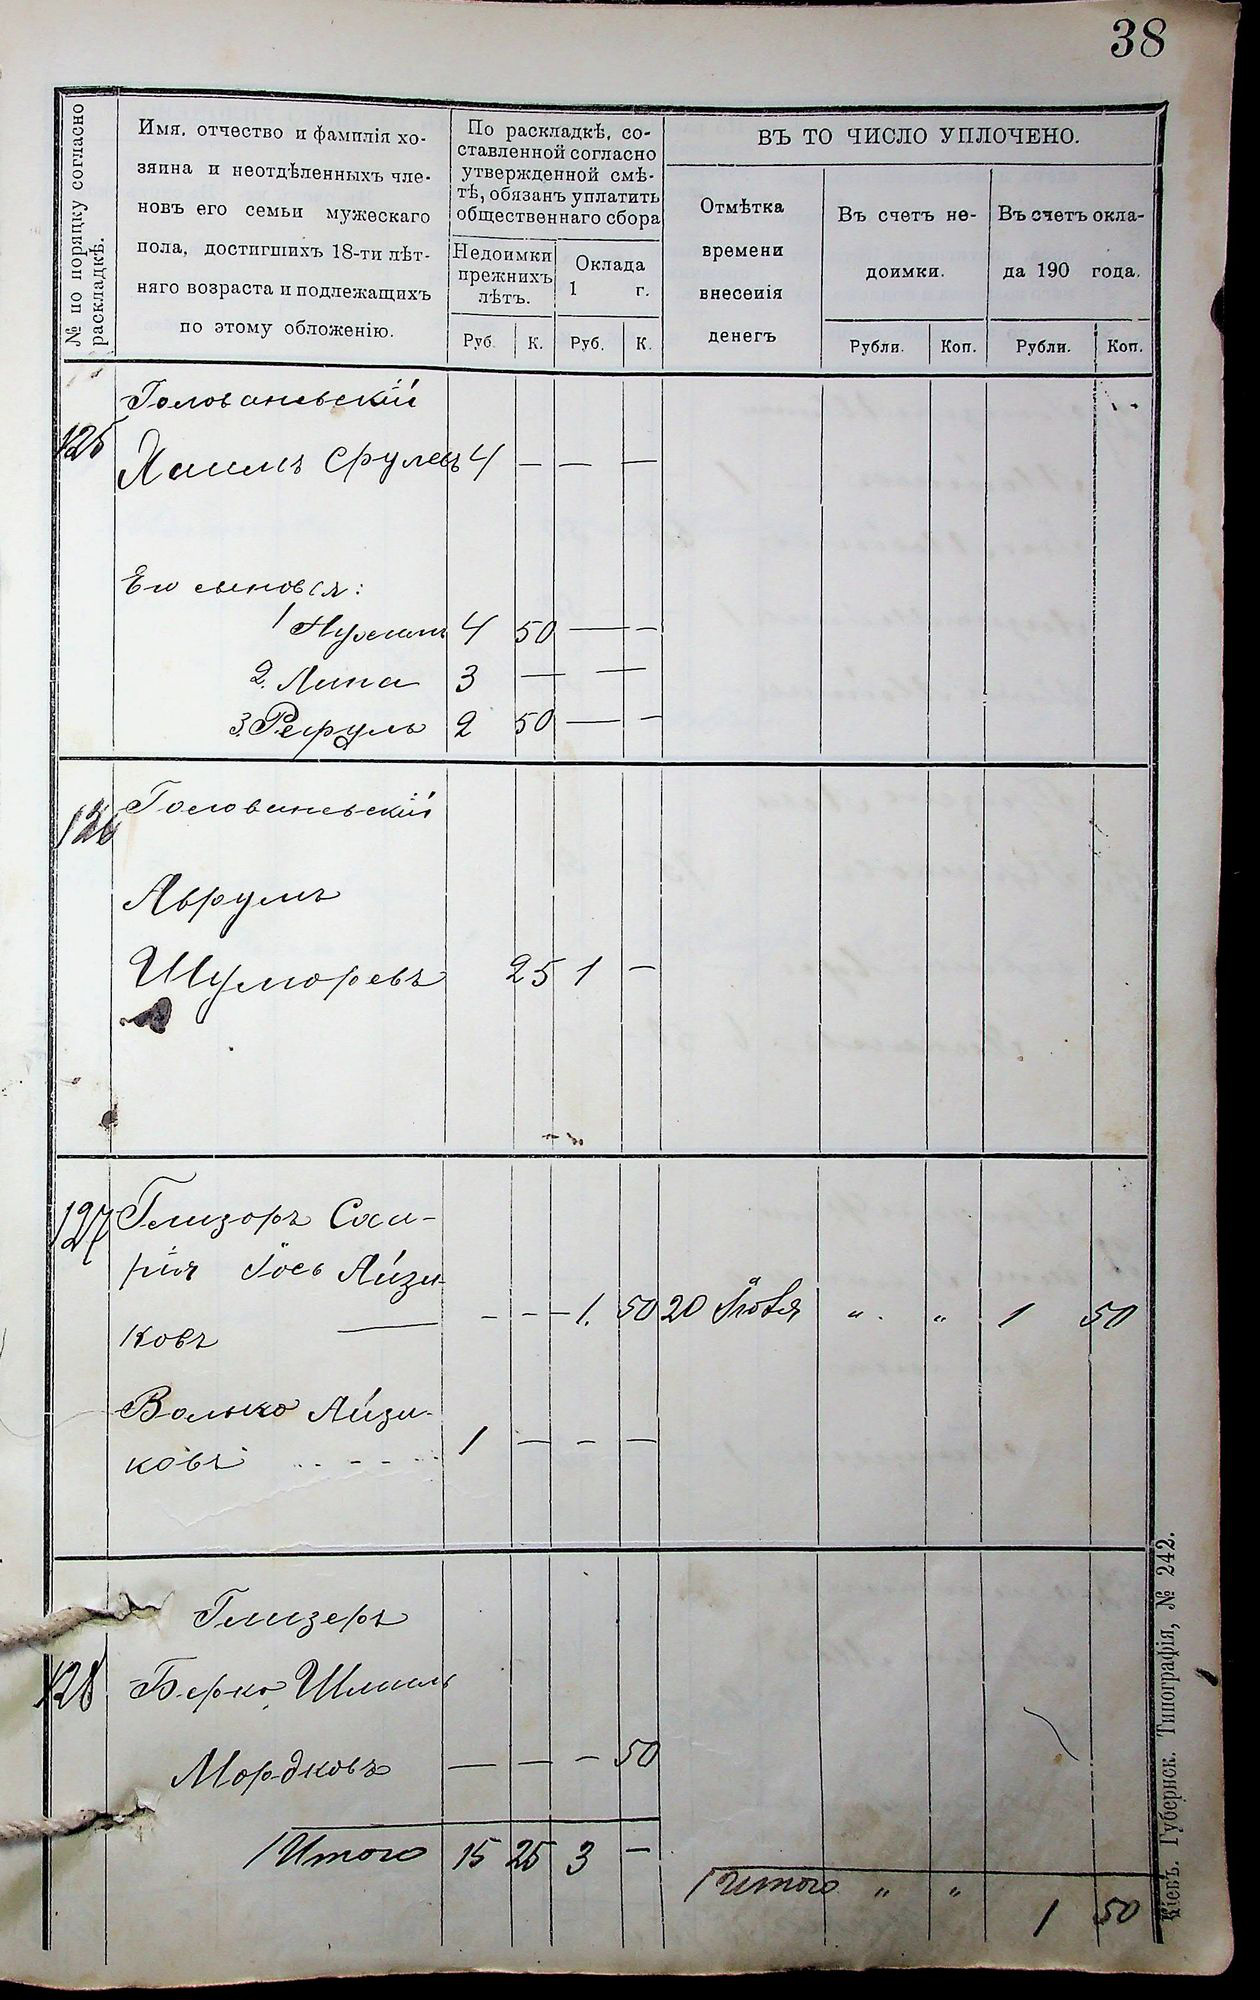 38
№ по порядку согласно раскладкѣ.
Имя, отчество и фамилія хо-
зяина и неотдѣленныхъ чле-
новъ его семьи мужескаго
пола, достигшихъ 18-ти лѣт-
няго возраста и подлежащихъ
по этому обложенію.
По раскладкѣ, со-
ставленной согласно
утвержденной смѣ-
тѣ, обязанъ уплатить
общественнаго сбора
Недоимки
прежнихъ
лѣтъ.
Оклада
1 г.
Руб. К. Руб. К.
ВЪ ТО ЧИСЛО УПЛОЧЕНО.
Отмѣтка
времени
внесенія
денегъ
Въ счетъ не-
доимки.
Въ счетъ окла-
да 190 года.
Рубли. Коп. Рубли. Коп.
Голованевскій
125 Хаимъ Срулевъ 4 — — —
Его сыновья:
1 Нухим 4 50 — —
2. Липа 3 — —
3. Рефуль 2 50 — —
Голованевскій
126
Аврумъ
Шулюревъ 25 1 —
127 Глизоръ Саха-
рія Іось Айзи-
ковъ — - - — 1. 50 20 Іюля " " 1 50
Волько Айзи-
ковъ 1 — — —
Глизеръ
128 Берко Шмиль
Мордковъ — — — 50
Итого 15 25 3 —
Итого " " 1 50
Кіевъ. Губернск. Типографія, № 242.